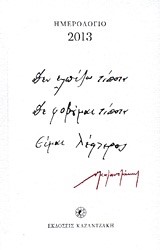 ΗΜΕΡΟΛΟΓΙΟ
2013
Δεν ελπίζω τίποτα
Δε φοβούμαι τίποτα
Είμαι λέφτερος
ΕΚΔΟΣΕΙΣ ΚΑΖΑΝΤΖΑΚΗ